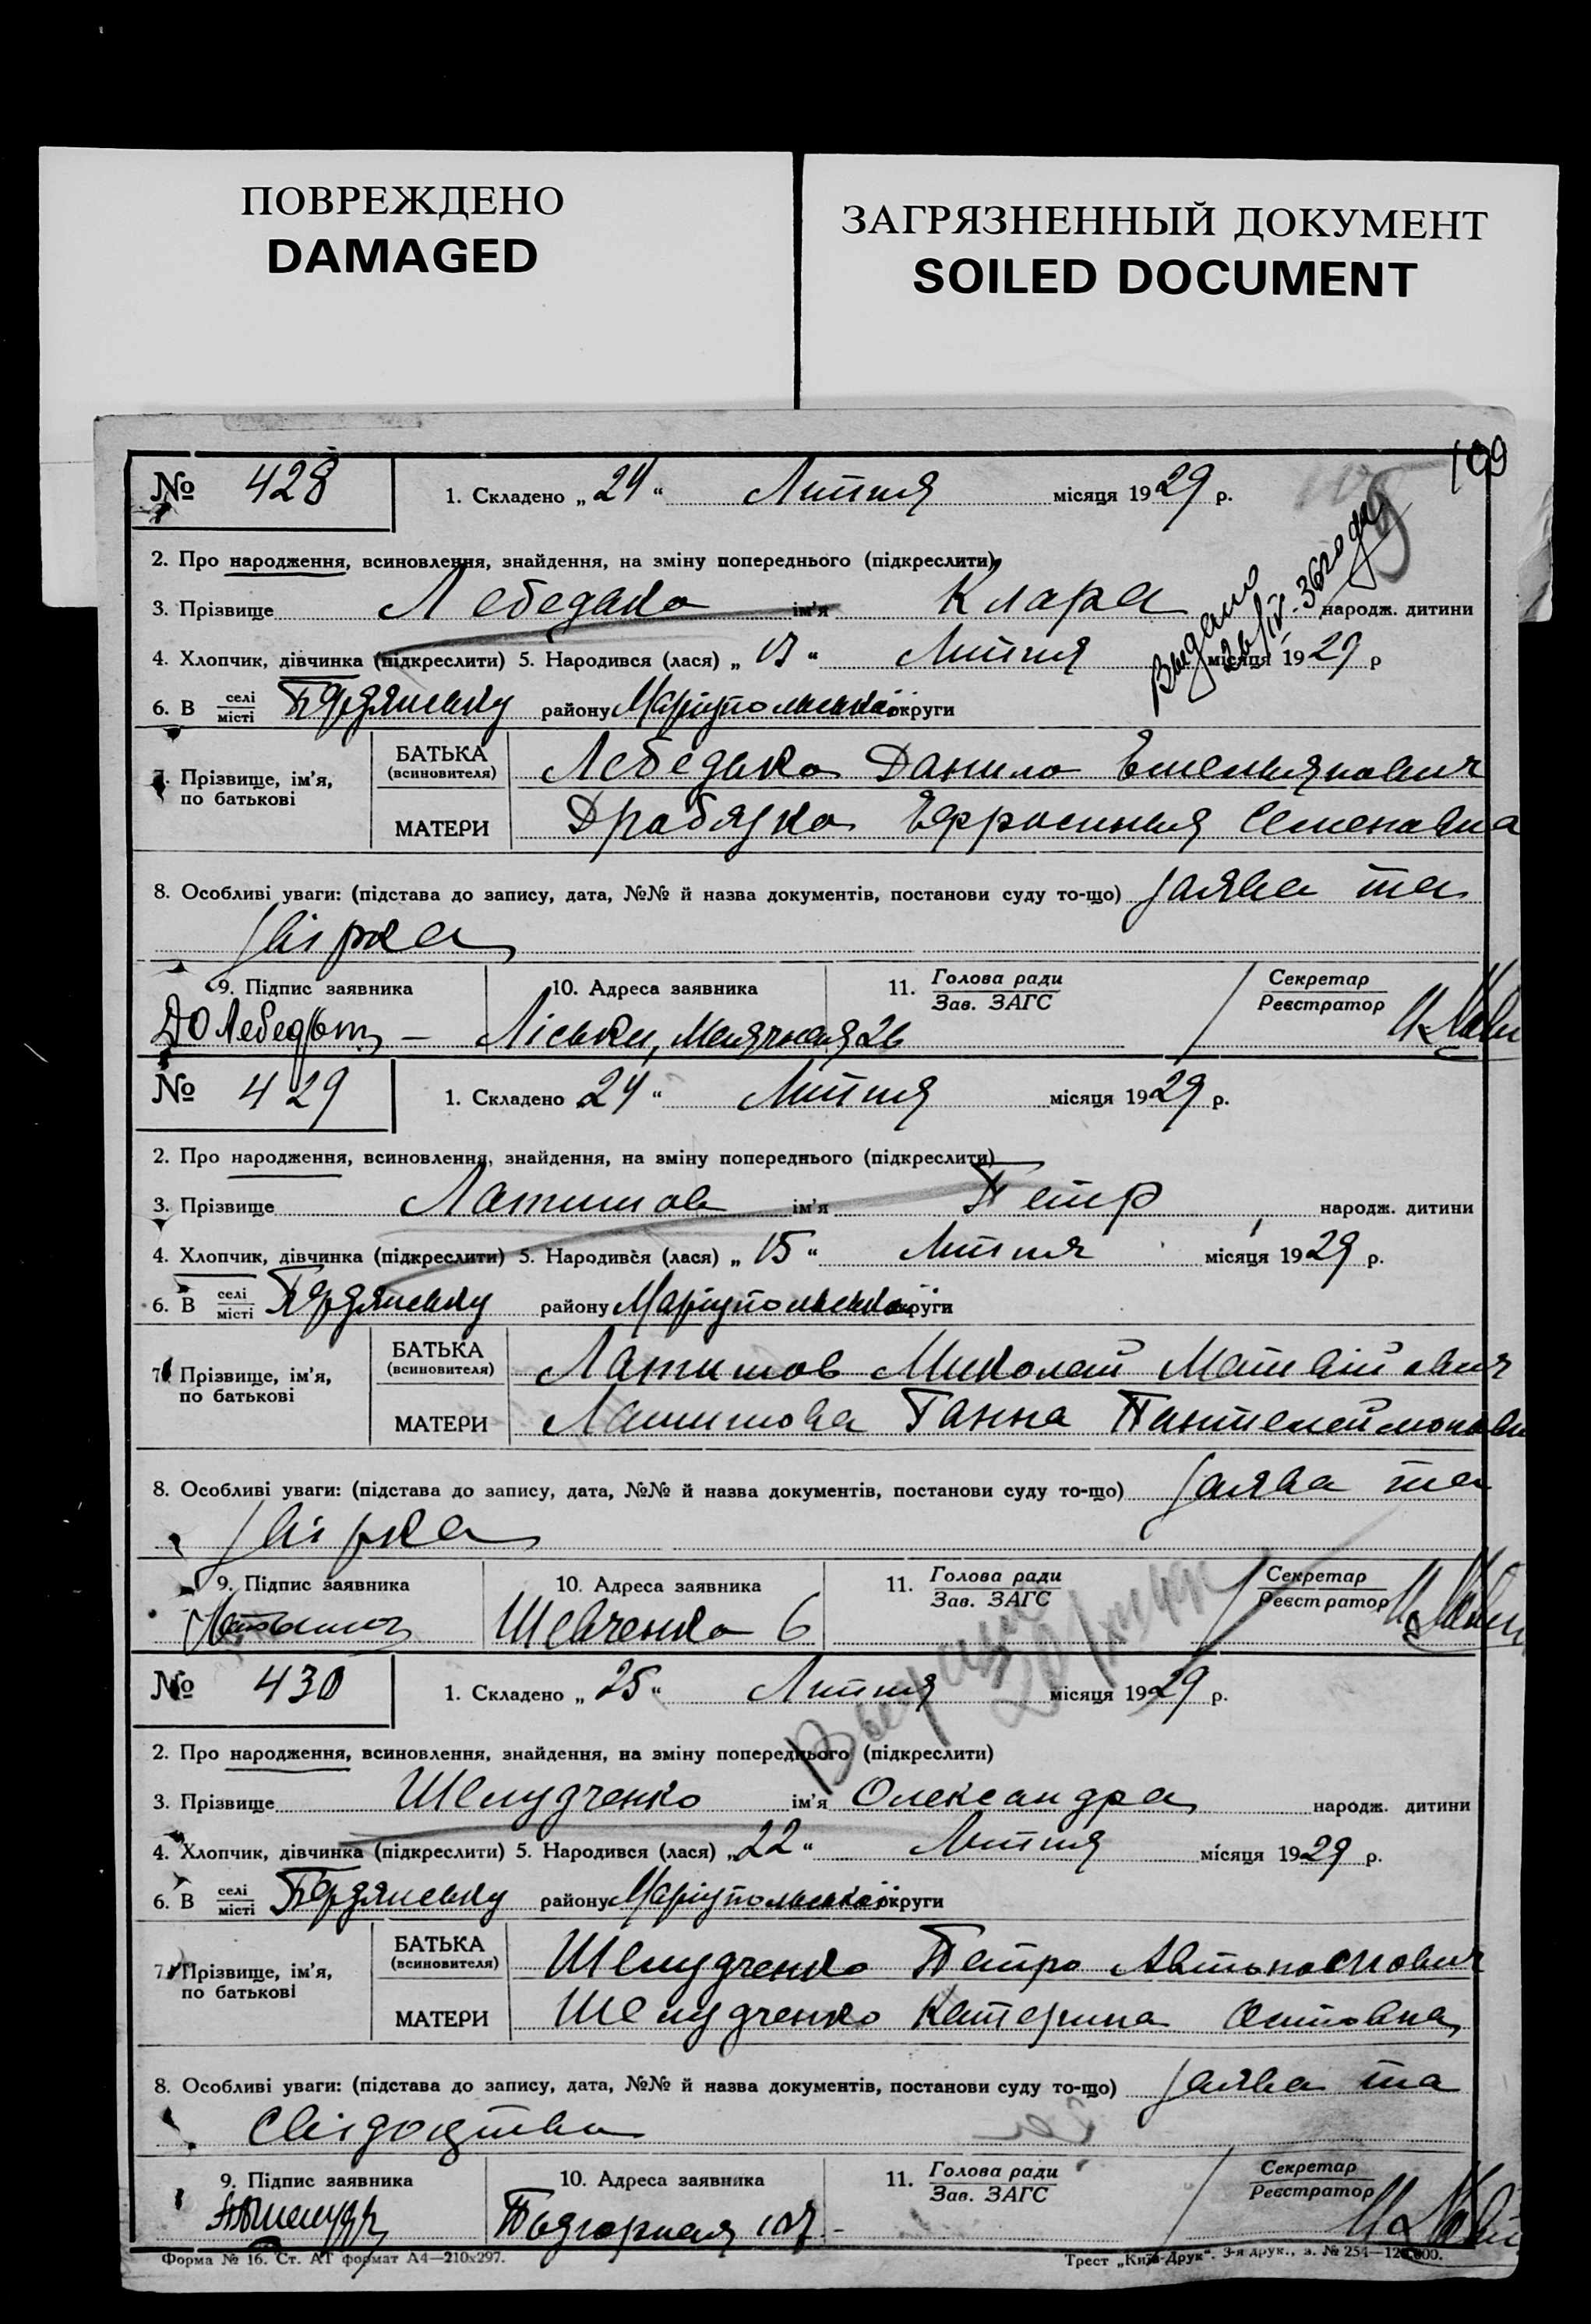 ПОВРЕЖДЕНО
DAMAGED
ЗАГРЯЗНЕННЫЙ ДОКУМЕНТ
SOILED DOCUMENT
199
№ 428
1. Складено „ 24 “ Липня місяця 1929 р.
2. Про народження, всиновлення, знайдення, на зміну попереднього (підкреслити)
3. Прізвище Лебедько ім'я Клара народж. дитини
Выдано 26/IV-36 года
4. Хлопчик, дівчинка (підкреслити) 5. Народився (лася) „ 13 “ Липня місяця 1929 р
6. В селі місті Бердянську району Маріупольської округи
7. Прізвище, ім'я, по батькові
БАТЬКА (всиновителя) Лебедько Данило Емельянович
МАТЕРИ Драбязко Ефросинья Семеновна
8. Особливі уваги: (підстава до запису, дата, №№ й назва документів, постанови суду то-що) заява та
звірка
9. Підпис заявника
10. Адреса заявника
11. Голова ради
Зав. ЗАГС
Секретар
Реєстратор
Ліськи, 26
№ 429
1. Складено 24 “ Липня місяця 1929 р.
2. Про народження, всиновлення, знайдення, на зміну попереднього (підкреслити)
3. Прізвище Латишов ім'я Петр народж. дитини
4. Хлопчик, дівчинка (підкреслити) 5. Народився (лася) „ 15 “ Липня місяця 1929 р.
6. В селі місті Бердянську району Маріупольської округи
7. Прізвище, ім'я, по батькові
БАТЬКА (всиновителя) Латишов Миколай Матвійович
МАТЕРИ Латишова Ганна Пантелеймоновн
8. Особливі уваги: (підстава до запису, дата, №№ й назва документів, постанови суду то-що) заява та
звірка
9. Підпис заявника
10. Адреса заявника
11. Голова ради
Зав. ЗАГС
Секретар
Реєстратор
Шевченка 6
№ 430
1. Складено „ 25 “ Липня місяця 1929 р.
2. Про народження, всиновлення, знайдення, на зміну попереднього (підкреслити)
3. Прізвище Шелудченко ім'я Олександра народж. дитини
4. Хлопчик, дівчинка (підкреслити) 5. Народився (лася) „ 22 “ Липня місяця 1929 р.
6. В селі місті Бердянську району Маріупольської округи
7. Прізвище, ім'я, по батькові
БАТЬКА (всиновителя) Шелудченко Петро
МАТЕРИ Шелудченко Катерина
8. Особливі уваги: (підстава до запису, дата, №№ й назва документів, постанови суду то-що) заява та
свідоцтво
9. Підпис заявника
10. Адреса заявника
11. Голова ради
Зав. ЗАГС
Секретар
Реєстратор
Подгорная
Форма № 16. Ст. АТ формат А4—210х297.
Трест „Київ-Друк“. 3-я друк., з. № 254—